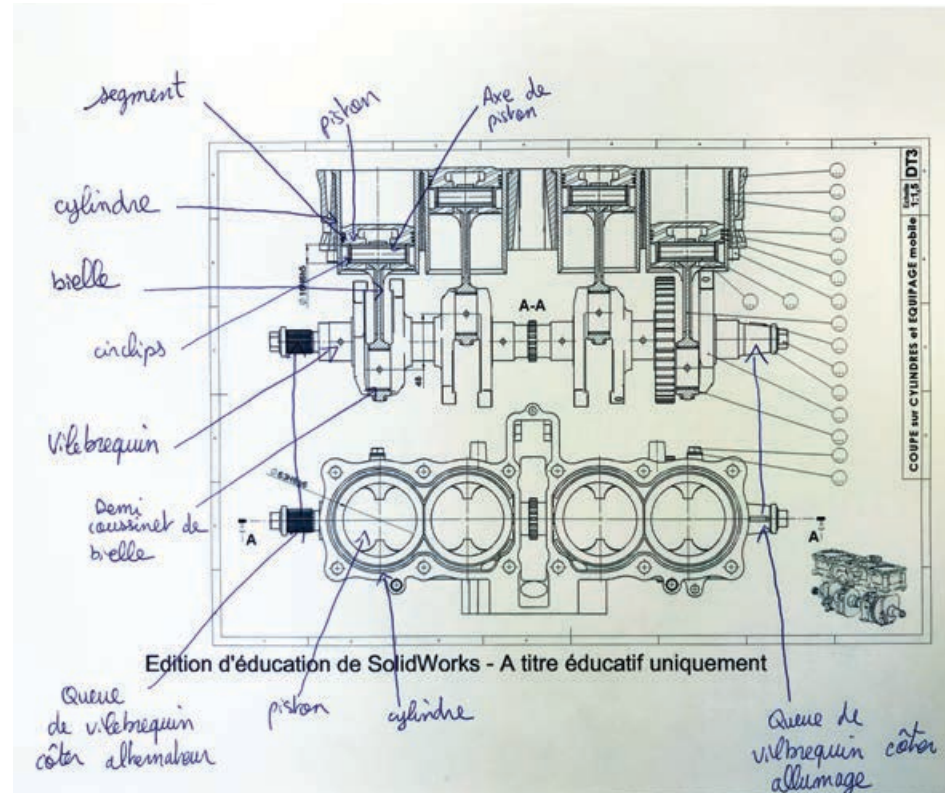 segment
piston
Axe de
piston
cylindre
bielle
circlips
vilebrequin
Demi
coussinet de
bielle
A-A
48
A
A
DT3
Echelle
1:1,5
COUPE sur CYLINDRES et EQUIPAGE mobile
Edition d'éducation de SolidWorks - A titre éducatif uniquement
Queue
de vilebrequin
côter alternateur
piston
cylindre
Queue de
vilbrequin côter
allumage